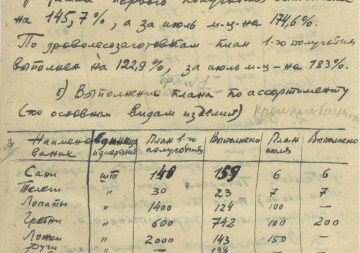 на 145,7%, а за июль м-ц на 174,6%.
По дроволесозаготовкам план 1-го полугодия
выполнен на 122,9%, за июль м-ц – на 183%.
б) Выполнение плана по ассортименту
(по основным видам изделий)
Наименование Единица измерения План 1-го полугодия Выполнено План июля Выполнено
Сани шт 140 159 6 6
Телеги " 30 23 7 7
Лопаты " 1400 124 100 —
Гребни " 600 742 100 200
Ложки " 2000 143 150 —
" — 138